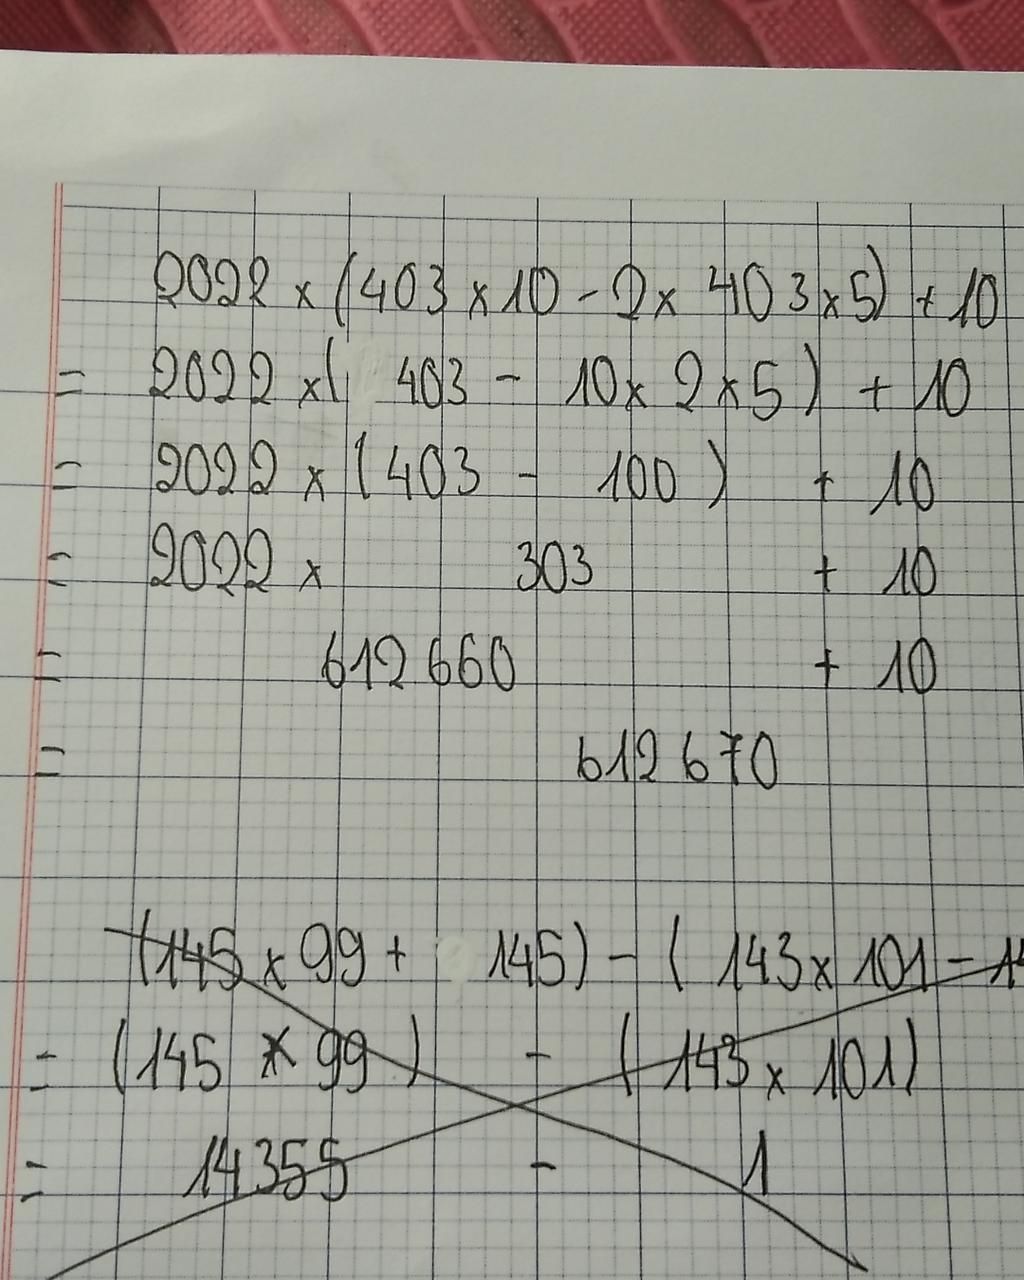 2022 x (403 x 10 - 2 x 403 x 5) + 10
= 2022 x ( 403 - 10 x 2 x 5 ) + 10
= 2022 x (403 - 100 ) + 10
= 2022 x 303 + 10
= 612 660 + 10
= 612 670
(145 x 99 + 145) - ( 143 x 101 - 14
= (145 x 99 ) - ( 143 x 101)
= 14355 - 1